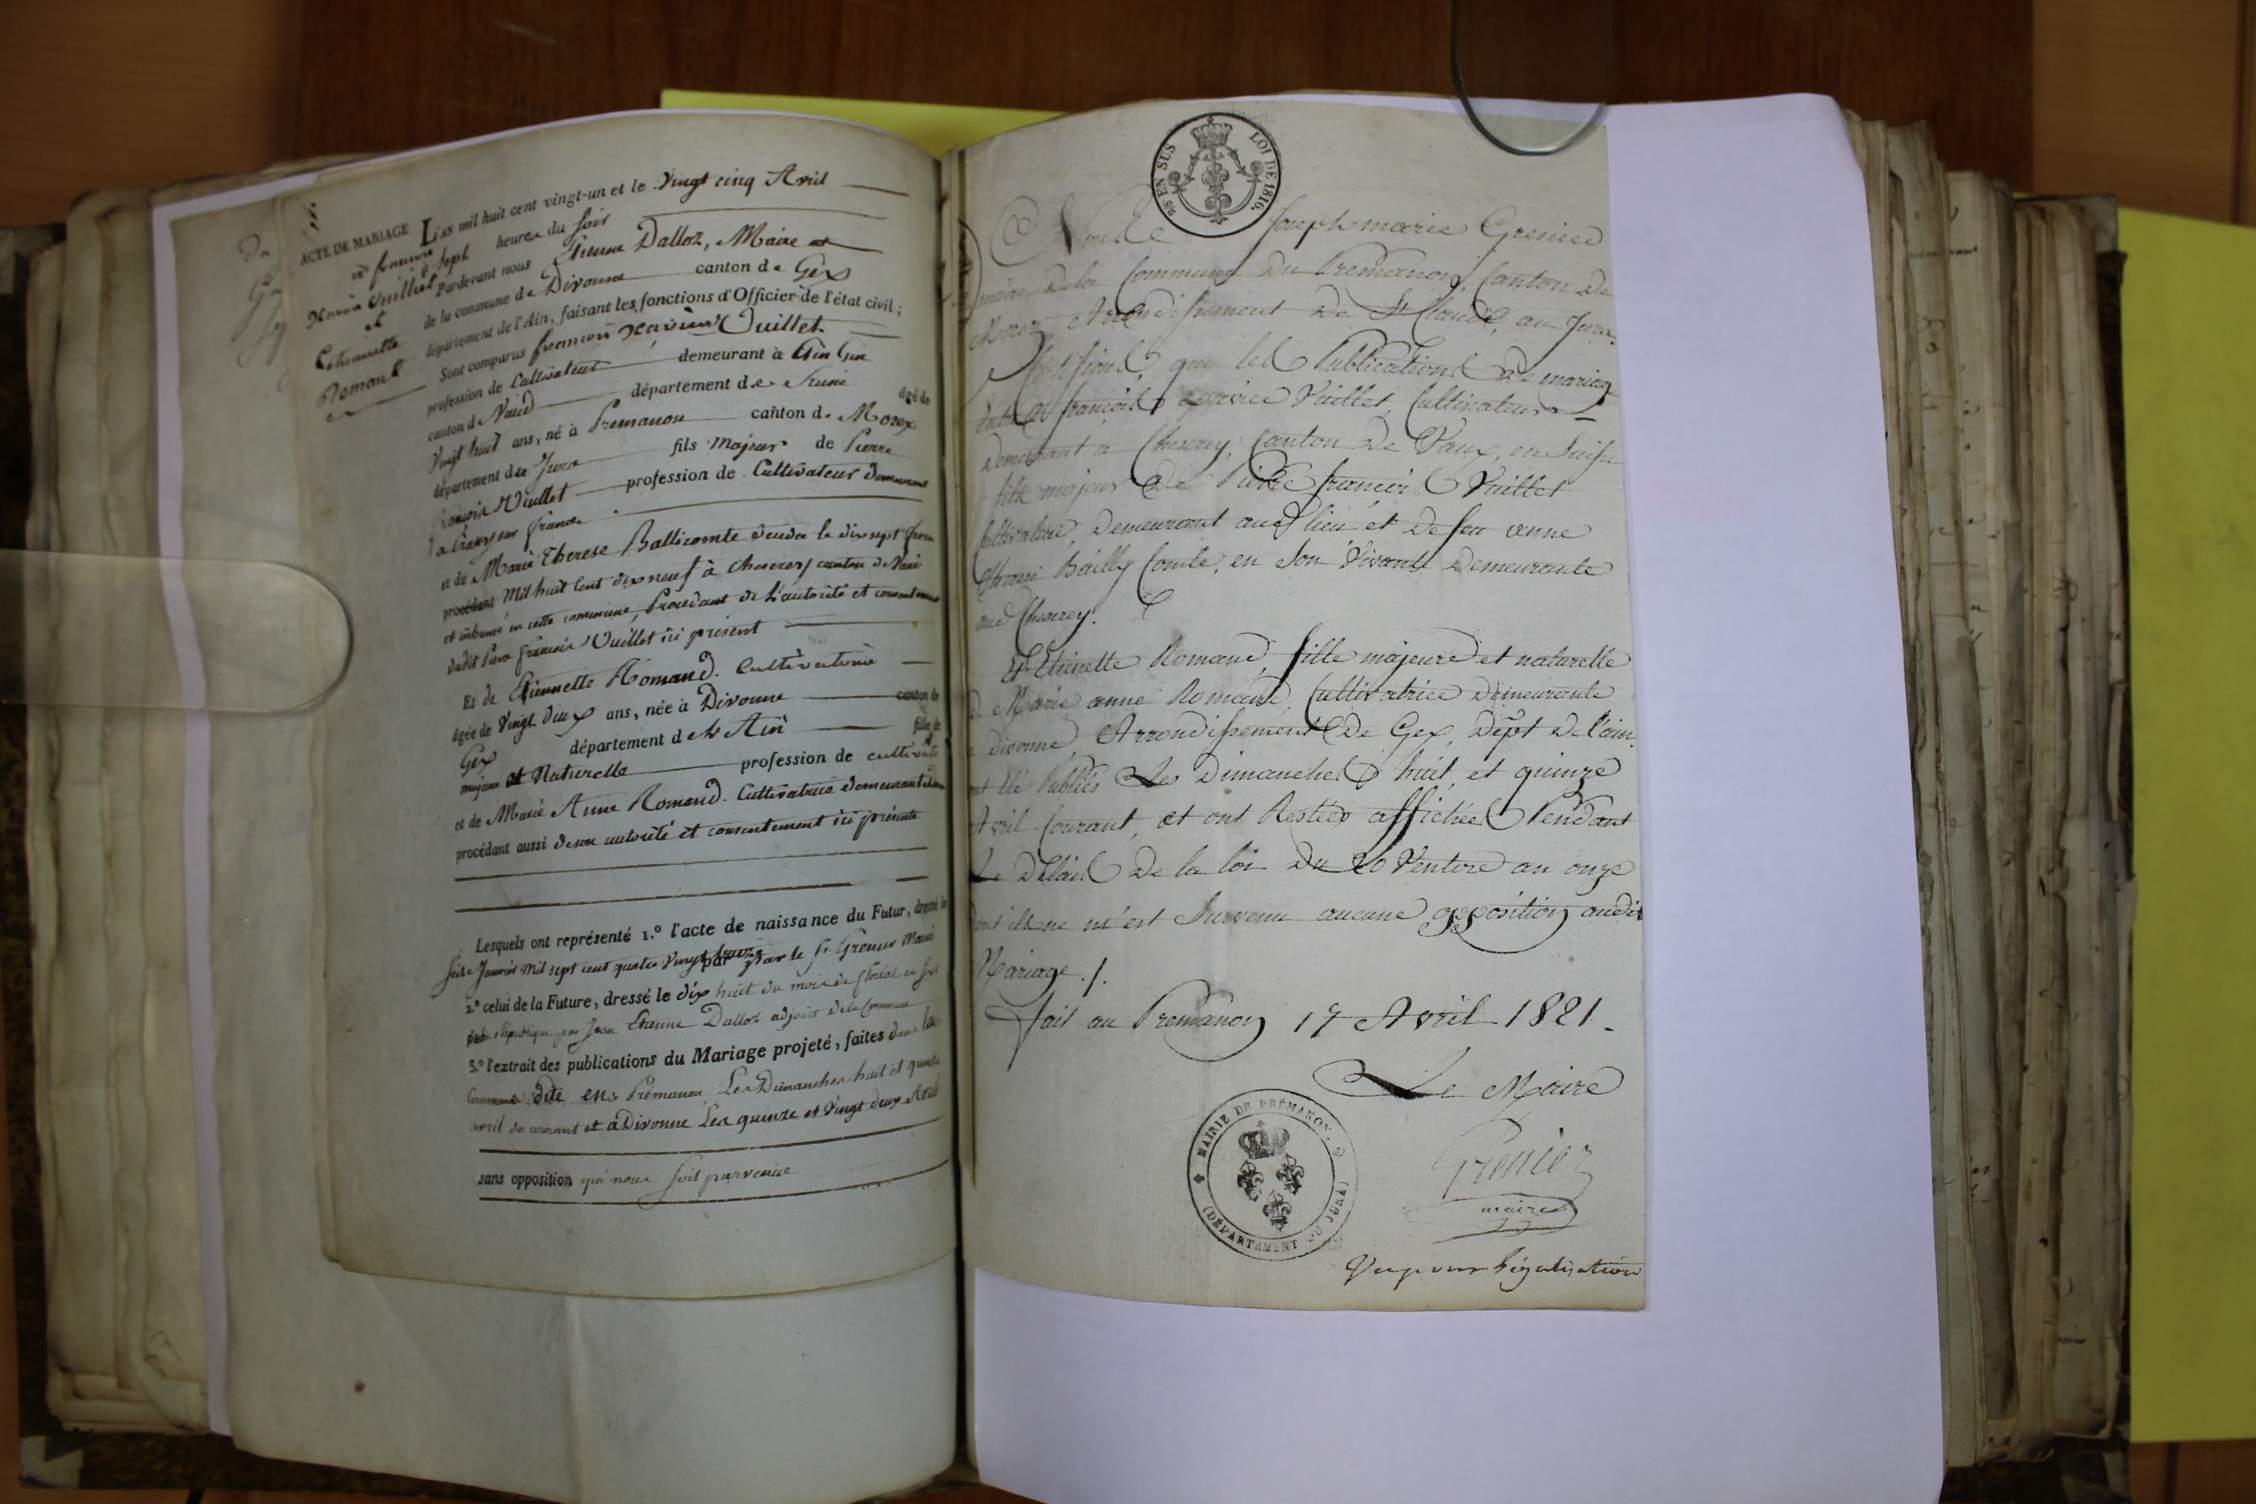 ACTE DE MARIAGE
Xavier Vuillet
et
Etiennette
Romand
L'an mil huit cent vingt-un et le Vingt cinq Avril
à sept heures du soir
Pardevant nous Etienne Dalloz, Maire
de la commune de Divonne canton de Gex
département de l'Ain, faisant les fonctions d'Officier de l'état civil;
Sont comparus françois Xavier Vuillet
profession de Cultivateur demeurant à
canton de Vaud département de Suisse âgé de
Vingt huit ans, né à Premanon canton de Morez
département du Jura fils majeur de Pierre
françois Vuillet profession de Cultivateur demeurant
à
et de Marie Therese Ballicomte
procédant Mil huit cent dix neuf à Cheserex canton de Vaud
et inhumé en cette commune, Procédant de L'autorité et consentement
dudit Pierre françois Vuillet ici présent
Et de Etiennette Romand. Cultivatrice
âgée de Vingt deux ans, née à Divonne canton de
Gex département de l'Ain fille de
majeure et Naturelle profession de
et de Marie Anne Romand. Cultivatrice demeurant
procédant aussi de son autorité et consentement ici présente
Lesquels ont représenté 1.º l'acte de naissance du Futur, dressé le
Janvier Mil sept cent quatre Vingt par par le Sr. Grenier Maire
2.º celui de la Future, dressé le dix huit du mois de floréal an
par Jean Etienne Dalloz adjoint de la Commune
3.º l'extrait des publications du Mariage projeté, faites dans la
Commune dite en Prémanon Les Dimanches huit et quinze
avril du courant et à Divonne Les quinze et Vingt deux Avril
sans opposition qui nous soit parvenue
25 EN SUS LOI DE 1816.
Nous Joseph marie Grenier
maire de la Commune du Premanon, Canton de
Morez Arrondissement de St Claude, au Jura.
Certifions, que les Publications de mariage
Entre françois Xavier Vuillet, Cultivateur
demeurant à Cheserey, Canton de Vaux, en Suisse
fils majeur de Pierre françois Vuillet
Cultivateur, demeurant aud lieu et de feu
Bailly Comte, en son Vivant demeurante
aud Cheserey.
Et Etienette Romand, fille majeure et naturelle
de Marie anne Romand, Cultivatrice demeurante
à divonne Arrondissement de Gex, Dépt de l'ain.
ont été Publiés Les Dimanches huit et quinze
Avril Courant, et ont Restées affichées Pendant
Le Délais de la loi du 20 Ventose an onze
dont il ne m'est survenu aucune opposition audit
Mariage ./.
fait au Premanon 17 Avril 1821.
Le Maire
Grenier
maire
MAIRIE DE PRÉMANON.
(DÉPARTEMENT DU JURA)
Vu pour Légalisation